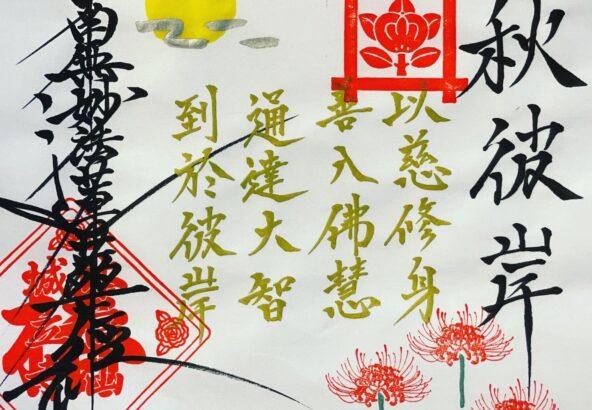 秋彼岸
以慈修身
善入佛慧
通達大智
到於彼岸
南無妙法蓮華経